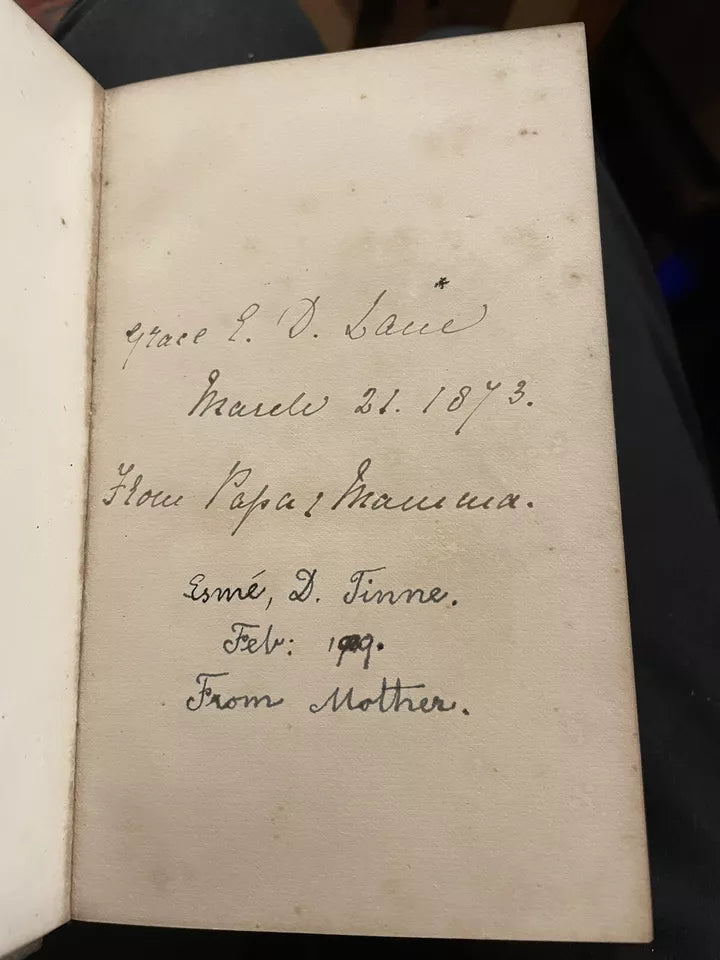 Grace E. D. Lane
March 21. 1873.
From Papa & Mamma.
Esmé, D. Tinne.
Feb:
From Mother.